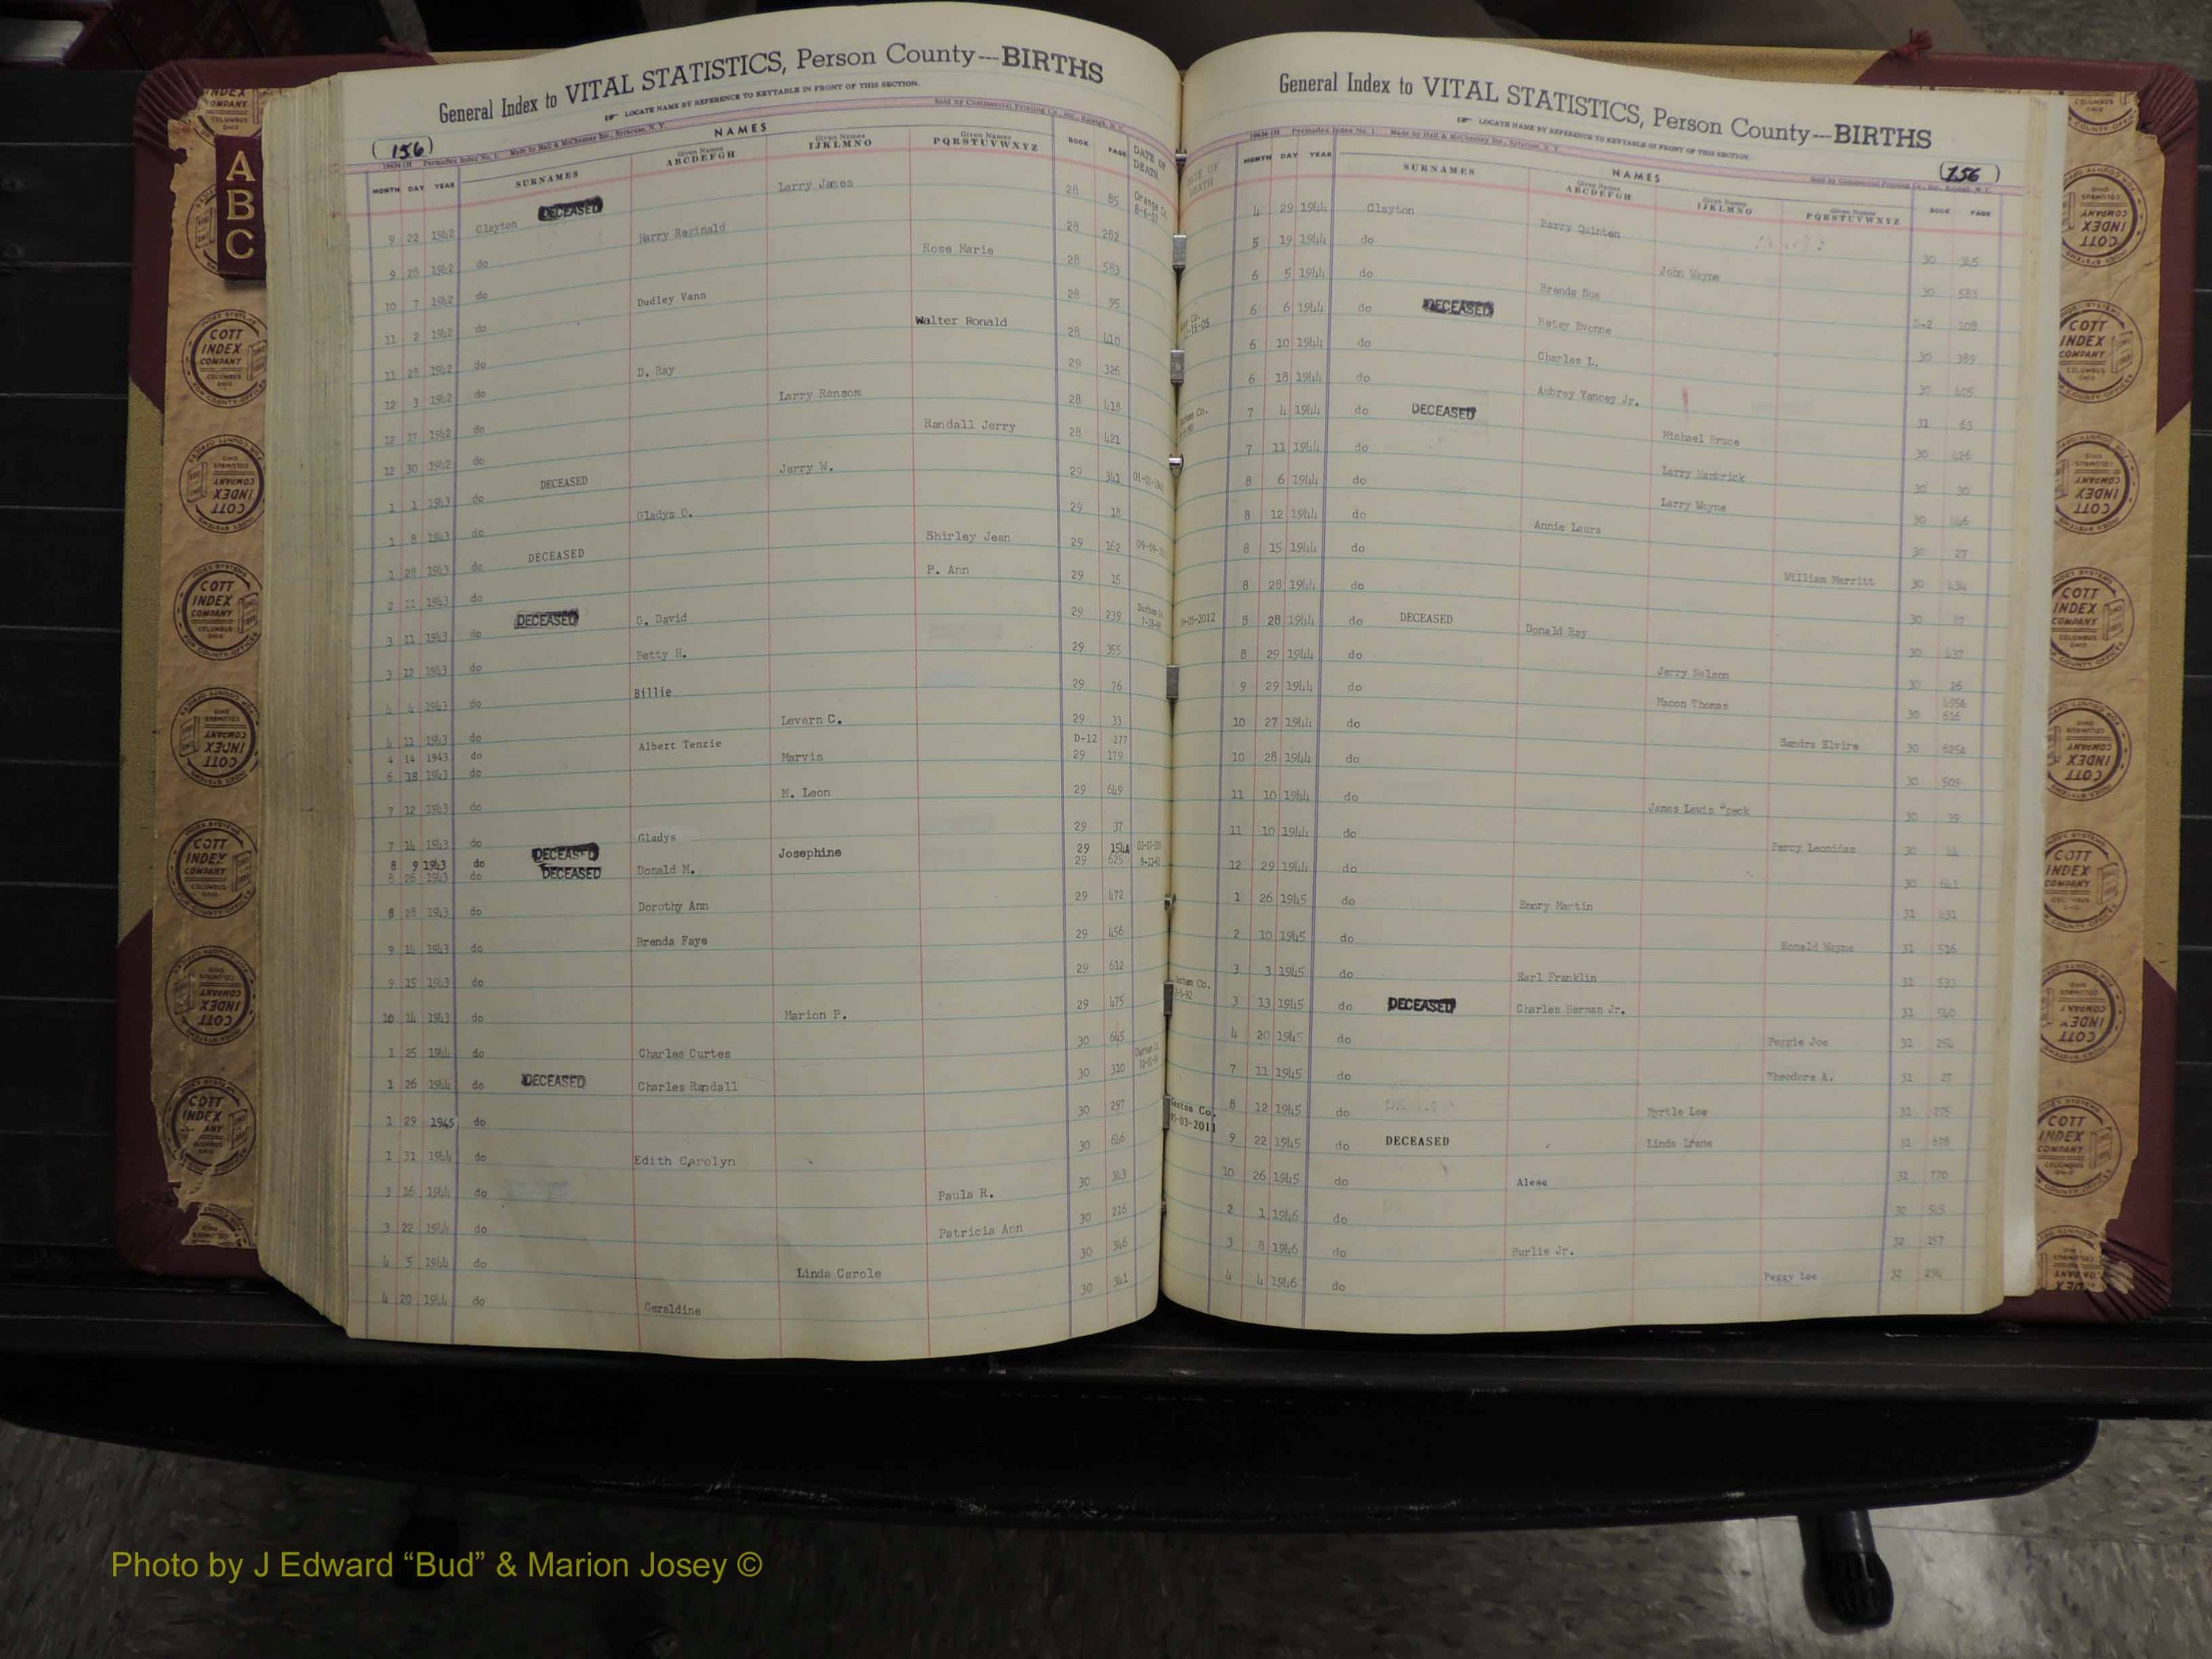 General Index to VITAL STATISTICS, Person County---BIRTHS
LOCATE NAME BY REFERENCE TO KEYTABLE IN FRONT OF THIS SECTION.
Sold by Commercial Printing Co., Inc., Raleigh, N. C.
(156)
Permadex Index No. 1. Made by Hall & McChesney Inc., Syracuse, N. Y.
NAMES
MONTH DAY YEAR SURNAMES Given Names ABCDEFGH Given Names IJKLMNO Given Names PQRSTUVWXYZ BOOK PAGE DATE OF DEATH
9 22 1942 Clayton DECEASED Larry James 28 85 Orange Co.
9 28 1942 do Harry Reginald 28 282
10 7 1942 do Rose Marie 28 583
11 2 1942 do Dudley Vann 28 95
11 28 1942 do Walter Ronald 28 410
12 3 1942 do D. Ray 29 326
12 17 1942 do Larry Ransom 28 418
12 30 1942 do Randall Jerry 28 421
1 1 1943 do DECEASED Jerry W. 29 341
1 8 1943 do Gladys O. 29 18
1 28 1943 do DECEASED Shirley Jean 29 162
2 11 1943 do P. Ann 29 15
3 11 1943 do DECEASED G. David 29 239 Durham Co.
3 12 1943 do Betty H. 29 355
4 4 1943 do Billie 29 76
4 11 1943 do Levern C. 29 33
4 14 1943 do Albert Tenzie D-12 277
6 18 1943 do Marvis 29 119
7 12 1943 do M. Leon 29 649
7 14 1943 do Gladys 29 37
8 9 1943 do DECEASED Josephine 29 154A
8 26 1943 do DECEASED Donald M. 29 625
8 28 1943 do Dorothy Ann 29 472
9 14 1943 do Brenda Faye 29 456
9 15 1943 do 29 612
10 14 1943 do Marion P. 29 475
1 25 1944 do Charles Curtes 30 645
1 26 1944 do DECEASED Charles Randall 30 310
1 29 1945 do 30 297
1 31 1944 do Edith Carolyn 30 646
3 16 1944 do Paula R. 30 343
3 22 1944 do Patricia Ann 30 216
4 5 1944 do Linda Carole 30 346
4 20 1944 do Geraldine 30 341
General Index to VITAL STATISTICS, Person County---BIRTHS
LOCATE NAME BY REFERENCE TO KEYTABLE IN FRONT OF THIS SECTION.
Permadex Index No. 1. Made by Hall & McChesney Inc., Syracuse, N. Y.
(156)
NAMES
Sold by Commercial Printing Co., Inc., Raleigh, N. C.
DATE OF DEATH MONTH DAY YEAR SURNAMES Given Names ABCDEFGH Given Names IJKLMNO Given Names PQRSTUVWXYZ BOOK PAGE
4 29 1944 Clayton Harry Quinten 30
5 19 1944 do John Wayne 30 583
6 5 1944 do Brenda Sue D-2 108
6 6 1944 do DECEASED Betsy Evonne 30 389
6 10 1944 do Charles L. 30 405
6 18 1944 do Aubrey Yancey Jr. 31 63
7 4 1944 do DECEASED Michael Bruce 30 426
7 11 1944 do Larry Hambrick 30 30
8 6 1944 do Larry Wayne 30
8 12 1944 do Annie Laura 30 27
8 15 1944 do William Merritt 30 434
8 28 1944 do 30
8 28 1944 do DECEASED Donald Ray 30 437
8 29 1944 do Jerry Nelson 30 26
9 29 1944 do Macon Thomas 30 616
10 27 1944 do Sandra Elvira 30
10 28 1944 do 30 509
11 10 1944 do James Lewis 30
11 10 1944 do Percy Leonidas 30
12 29 1944 do 30
1 26 1945 do Emory Martin 31 431
2 10 1945 do Ronald Wayne 31 536
3 3 1945 do Earl Franklin 31 533
3 13 1945 do DECEASED Charles Herman Jr. 31 540
4 20 1945 do Peggie Joe 31 254
7 11 1945 do Theodore A. 31 27
8 12 1945 do Myrtle Lee 31 275
Gaston Co. 9 22 1945 do DECEASED Linda Irene 31 678
10 26 1945 do Alese 31 770
2 1 1946 do 32 545
3 8 1946 do Burlie Jr. 32 257
4 4 1946 do Peggy Lee 32 254
A
B
C
COTT INDEX COMPANY COLUMBUS OHIO
Photo by J Edward “Bud” & Marion Josey ©